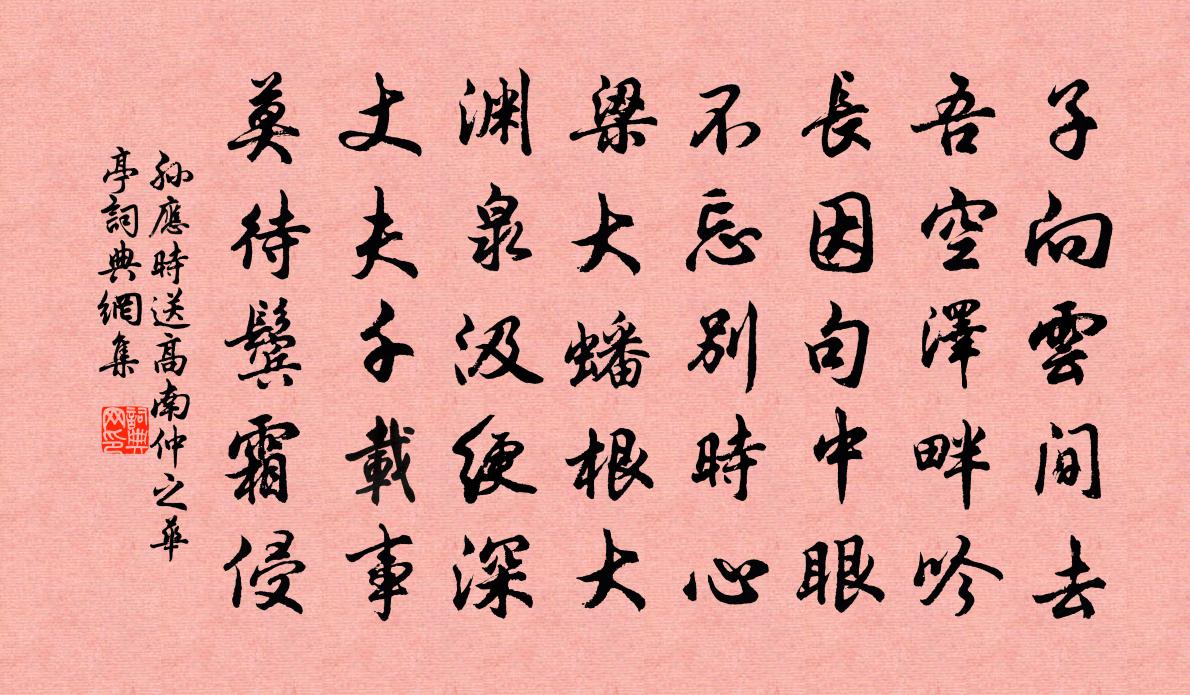 子向雲間去
吾空澤畔吟
長因句中眼
不忘別時心
梁大蟠根大
淵泉汲綆深
丈夫千載事
莫待鬢霜侵
孫應時送高南仲之華
亭詞典網集
詞典網印